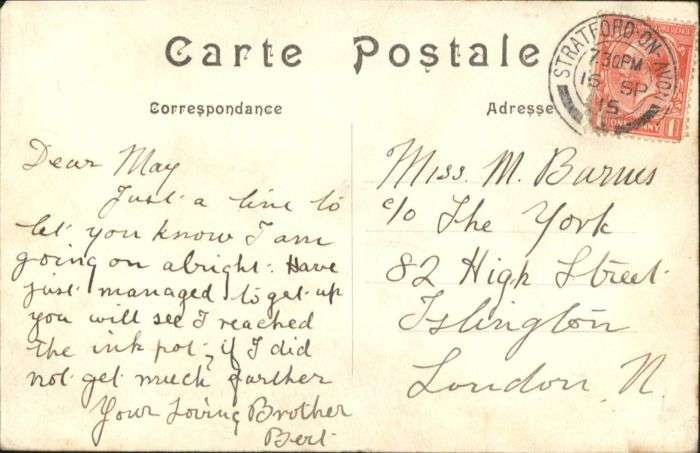 Carte Postale
Correspondance
Adresse
STRATFORD-ON-AVON
7.30PM
16 SP
15
Dear May
Just a line to
let you know I am
going on alright. Have
just managed to get up
you will see I reached
the ink pot, if I did
not get much further
Your Loving Brother
Bert
Miss. M. Barnes
c/o The York
82 High Street
Islington
London. N.